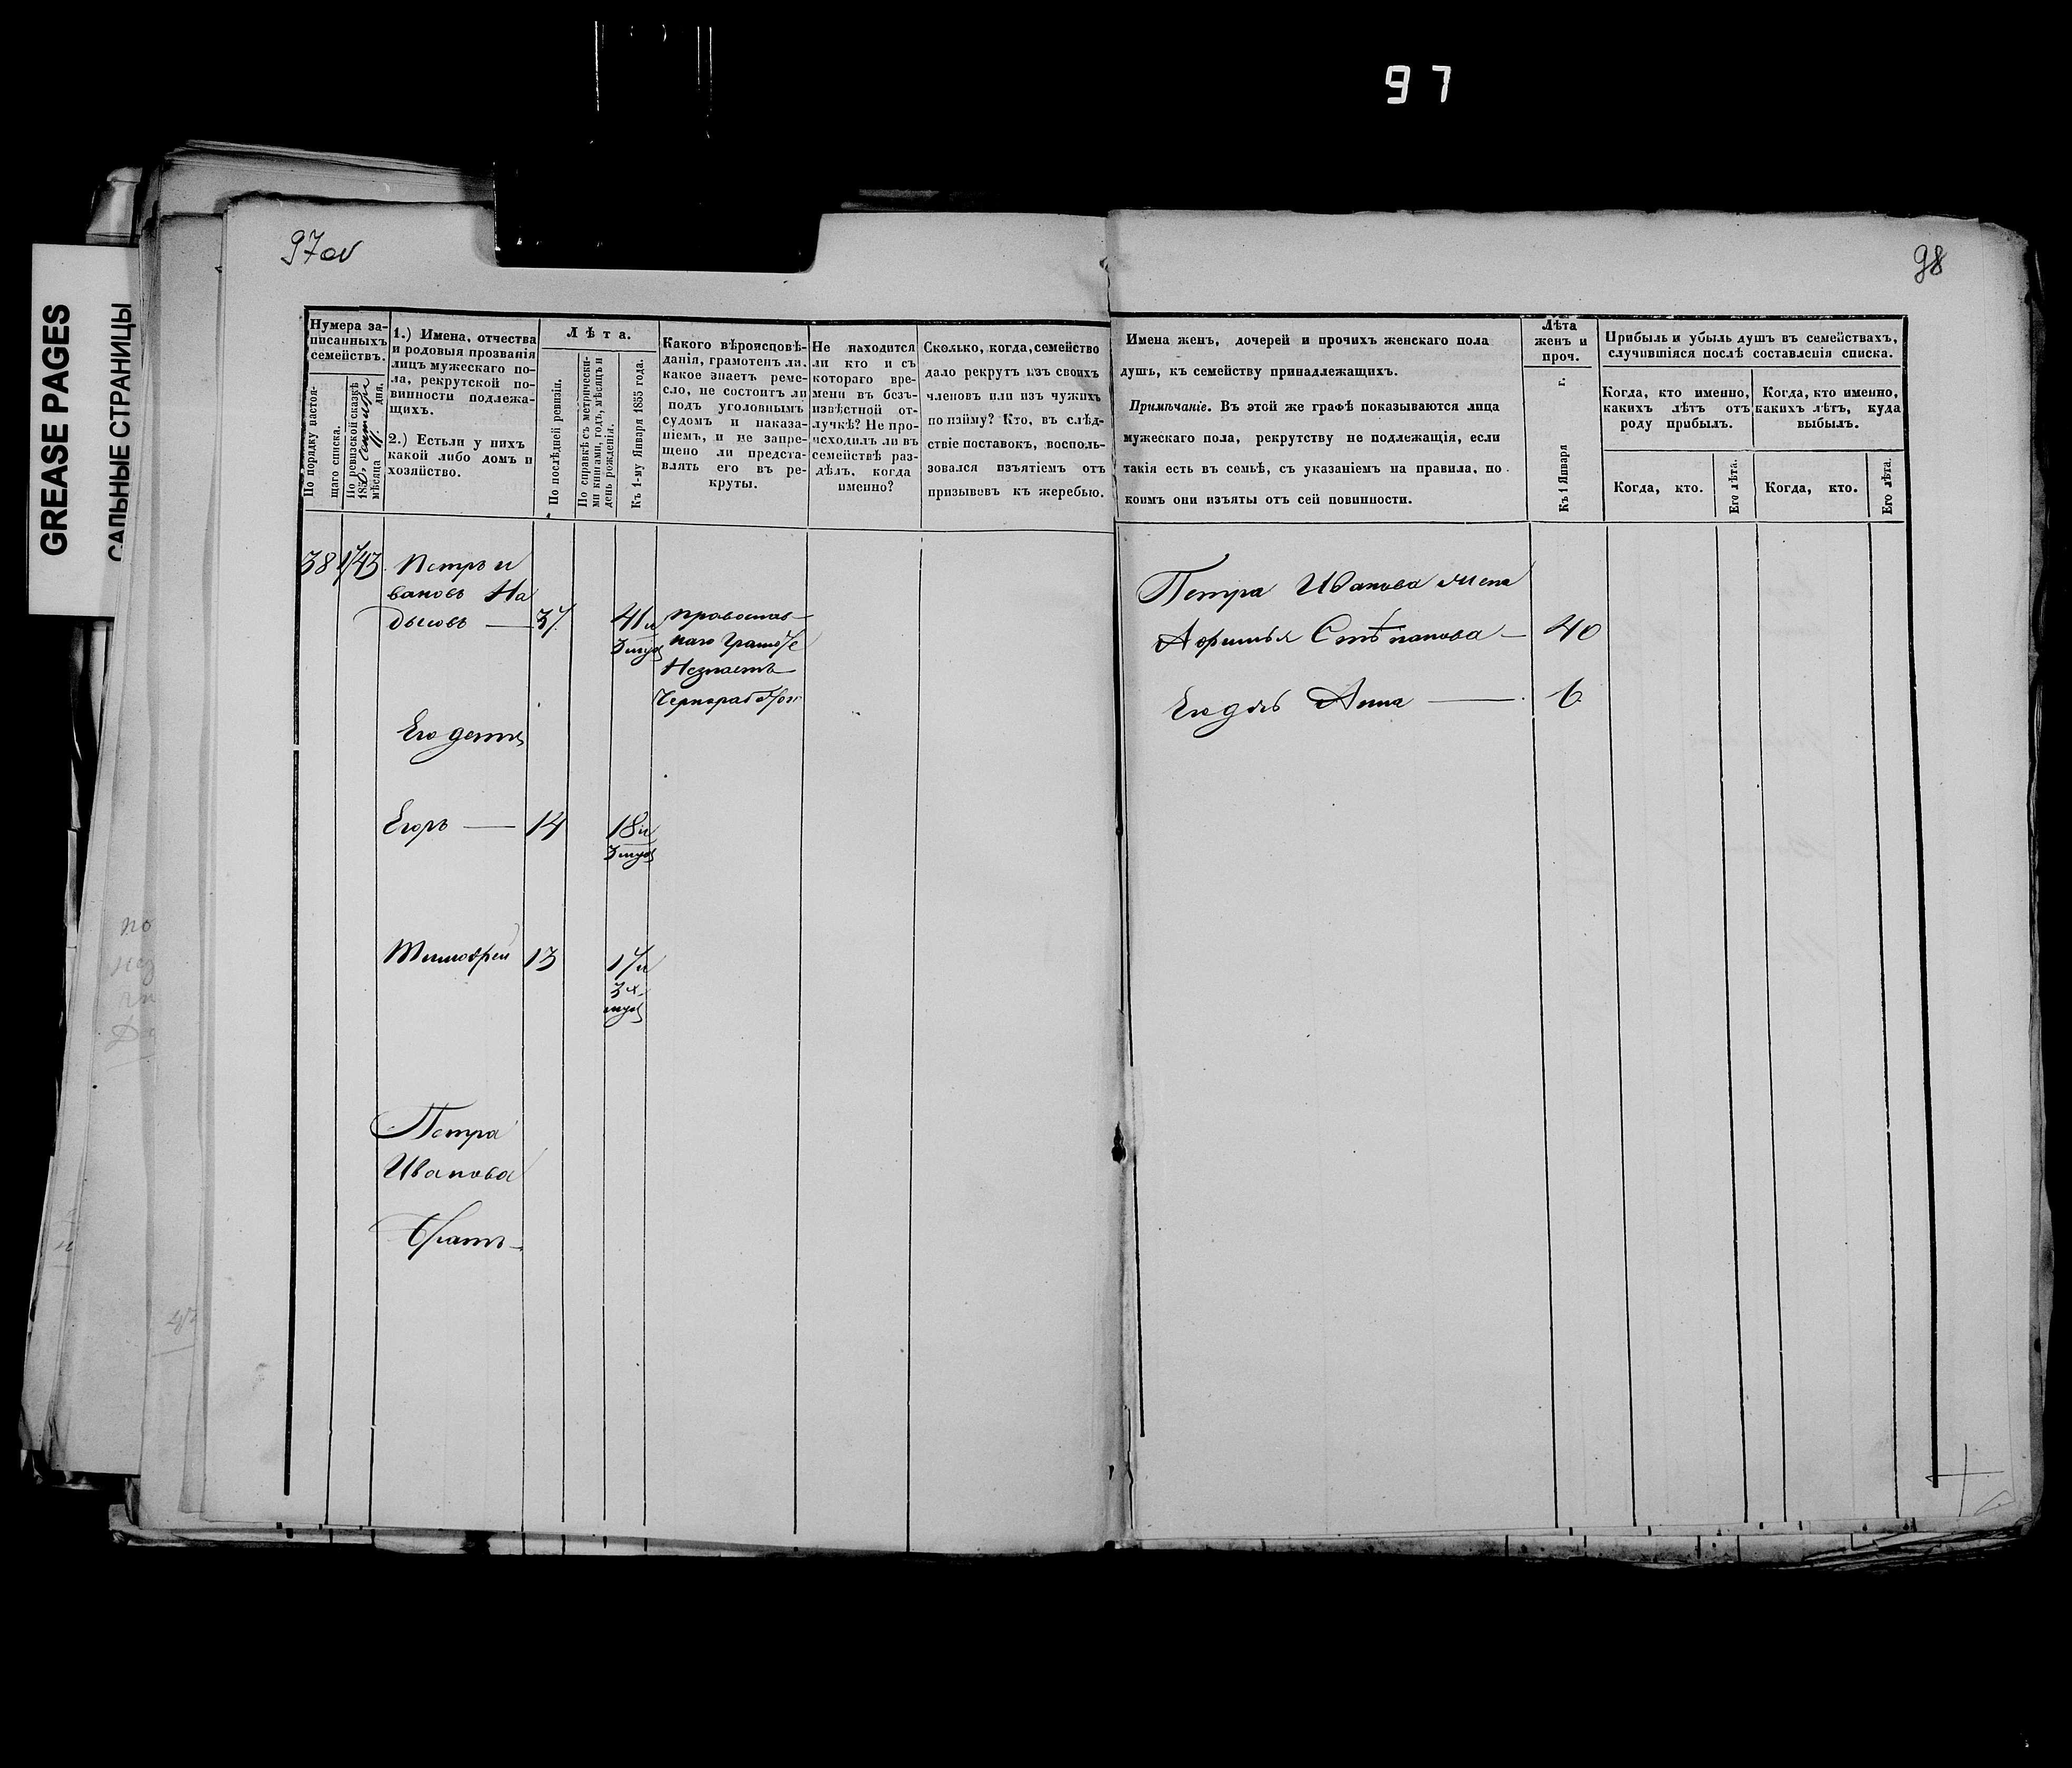 97
GREASE PAGES
САЛЬНЫЕ СТРАНИЦЫ
97об
98
Нумера записанныхъ семействъ.
По порядку настоящаго списка.
По ревизской сказкѣ 185 мѣсяца дня.
1.) Имена, отчества
и родовыя прозванія
лицъ мужескаго по-
ла, рекрутской по-
винности подлежа-
щихъ.
2.) Естьли у нихъ
какой либо домъ и
хозяйство.
Лѣта.
По послѣдней ревизіи.
По справкѣ съ метрически-
ми книгами, годъ, мѣсяцъ и
день рожденія.
Къ 1-му Января 1855 года.
Какого вѣроисповѣ-
данія, грамотенъ ли,
какое знаетъ реме-
сло, не состоитъ ли
подъ уголовнымъ
судомъ и наказа-
ніемъ, и не запре-
щено ли предста-
влять его въ ре-
круты.
Не находится
ли кто и съ
котораго вре-
мени въ безъ-
извѣстной от-
лучкѣ? Не про-
исходилъ ли въ
семействѣ раз-
дѣлъ, когда
именно?
Сколько, когда, семейство
дало рекрутъ изъ своихъ
членовъ или изъ чужихъ
по найму? Кто, въ слѣд-
ствіе поставокъ, восполь-
зовался изъятіемъ отъ
призывовъ къ жеребью.
Имена женъ, дочерей и прочихъ женскаго пола
душъ, къ семейству принадлежащихъ.
Примѣчаніе. Въ этой же графѣ показываются лица
мужескаго пола, рекрутству не подлежащія, если
такія есть въ семьѣ, съ указаніемъ на правила, по
коимъ они изъяты отъ сей повинности.
Лѣта
женъ и
проч.
Къ 1 Января г.
Прибыль и убыль душъ въ семействахъ,
случившіяся послѣ составленія списка.
Когда, кто именно,
какихъ лѣтъ отъ
роду прибылъ.
Когда, кто именно,
какихъ лѣтъ, куда
выбылъ.
Когда, кто.
Его лѣта.
Когда, кто.
Его лѣта.
38 143. Петръ И
вановъ На
дысовъ — 37 41 и
православ-
наго Грамоте
Незнаетъ
Чернорабоч
Его дети
Егоръ — 14 18 и
Тимофей 13 17 и
Петра
Иванова
братъ-
Петра Иванова жена
Афимья Стѣпанова — 40
Его дочь Анна — 6